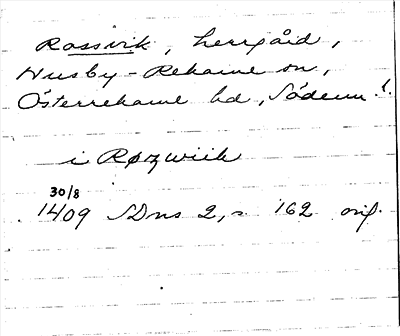 Rossvik, herrgård,
Husby-Rekarne sn,
Österrekarne hd, Söderm. l.
i Røzwiik
30/8
1409 SDns 2, s 162 orig.